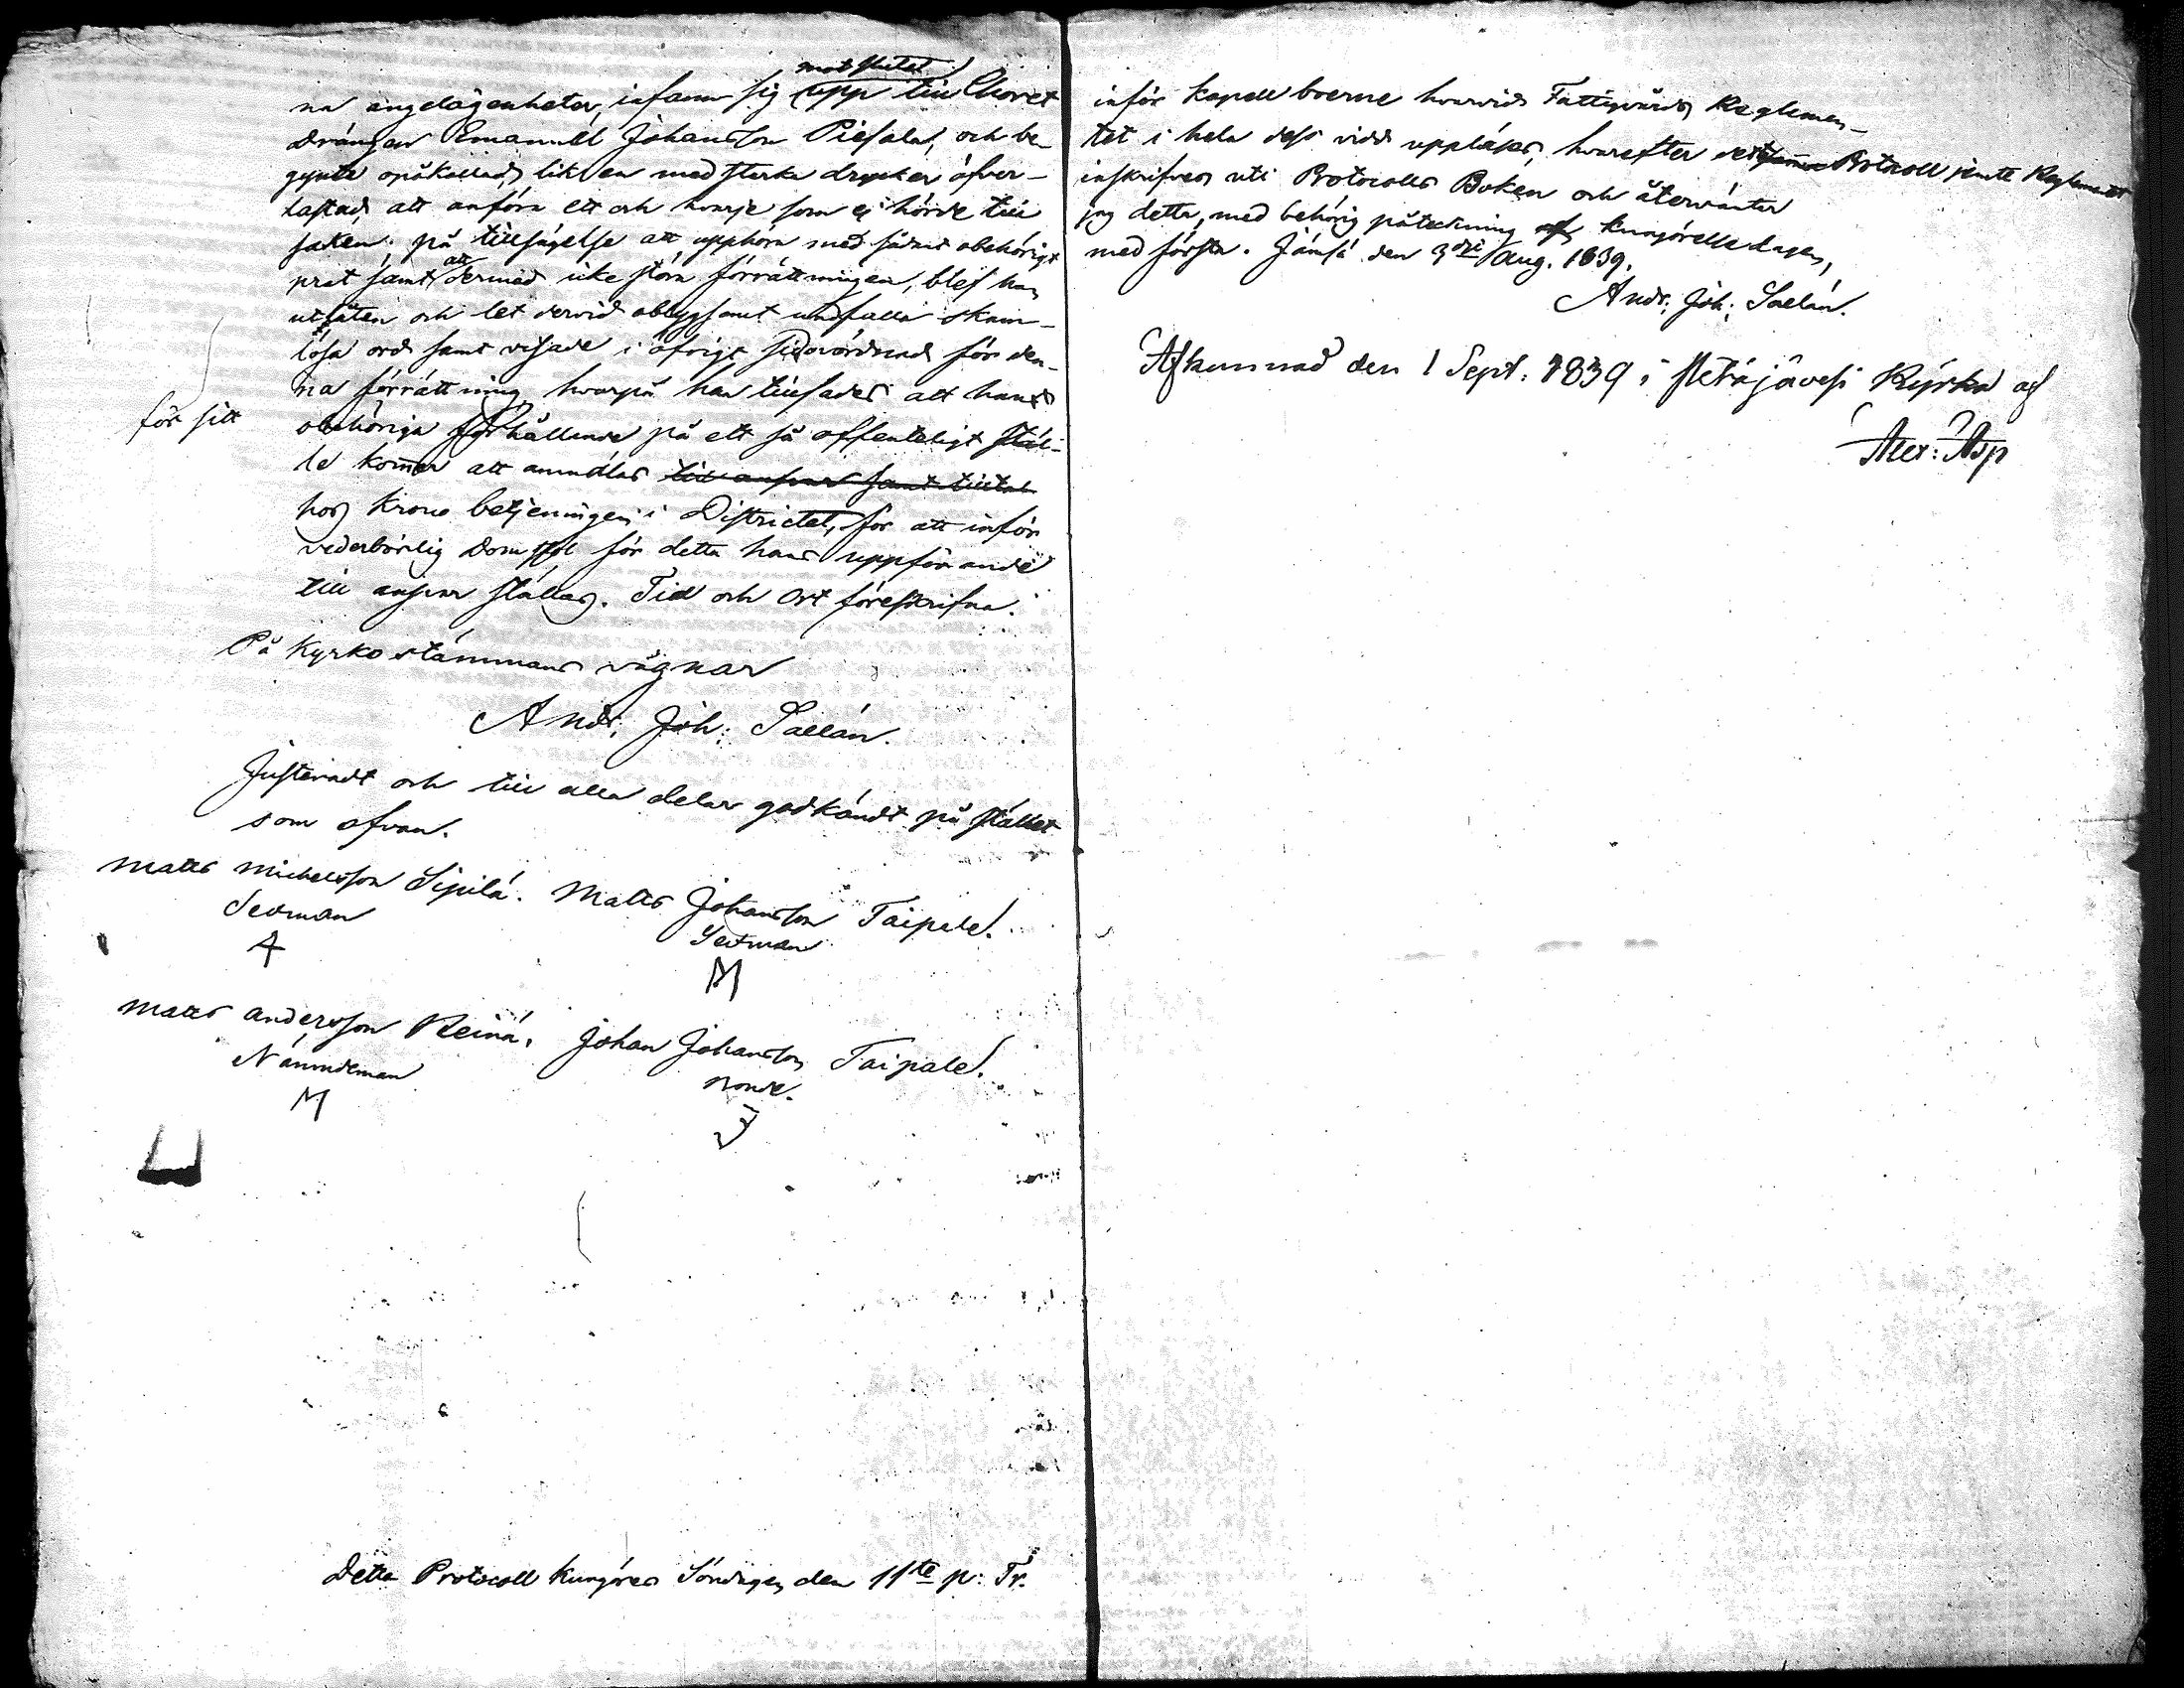 mot slutet
na angelägenheter, infann sig upp till Choret
drängen Emanuel Johansson Piesala, och be-
gynte opåkallad, liksom med starka drycker öfver-
lastad, att anföra ett och hvarje som ej hörde till
saken. på tillsägelse att upphöra med sådant obehörigt
prat samt att dermed icke störa förrättningen, blef han
utlåten och let dervid oblygsamt undfalla skam-
lösa ord samt visade i öfrigt sidovördnad för den-
na förrättning, hvarpå han tillsades att hans
för sitt
obehöriga förhållande på ett så offenteligt stäl-
le kommer att anmälas till ansvar samt tilltal
hos Krono betjeningen i Districtet, för att inför
vederbörlig Domstol för detta hans uppförande
till ansvar ställas. Tid och Ort föreskrifna.
På Kyrkostämmans vägnar
Andr. Joh: Saelán.
Justeradt och till alla delar godkändt på stället
som ofvan.
Matts Michelsson Sipilä. Matts Johansson Taipale.
Sexman Sexman
M
Matts Andersson Reinä, Johan Johansson Taipale.
Nämndeman Bonde.
M J
Detta Protocoll kungöres Söndagen den 11te p: Tr.
inför Kapellboerne hvarvid Fattigvårds Reglemen-
tet i hela dess vidd uppläses, hvarefter detsamma Protocoll jemte Reglementet
inskrifves uti Protocolls Boken och återväntar
jag detta, med behörig påteckning af kungörelse dagen,
med första. Jämsä den 3die Aug. 1839.
Andr. Joh: Saelán.
Afkunnad den 1 Sept: 1839 i Petäjävesi Kyrka af
Alex: Asp